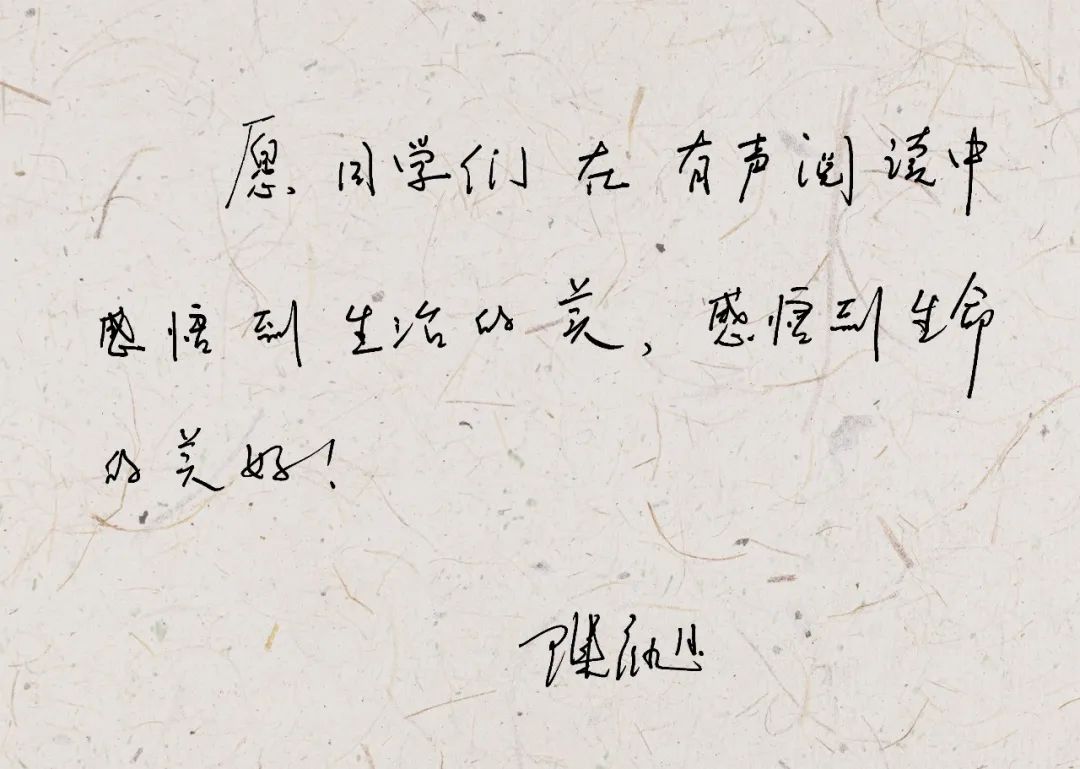 愿同学们在有声阅读中
感悟到生活的美，感悟到生命
的美好！